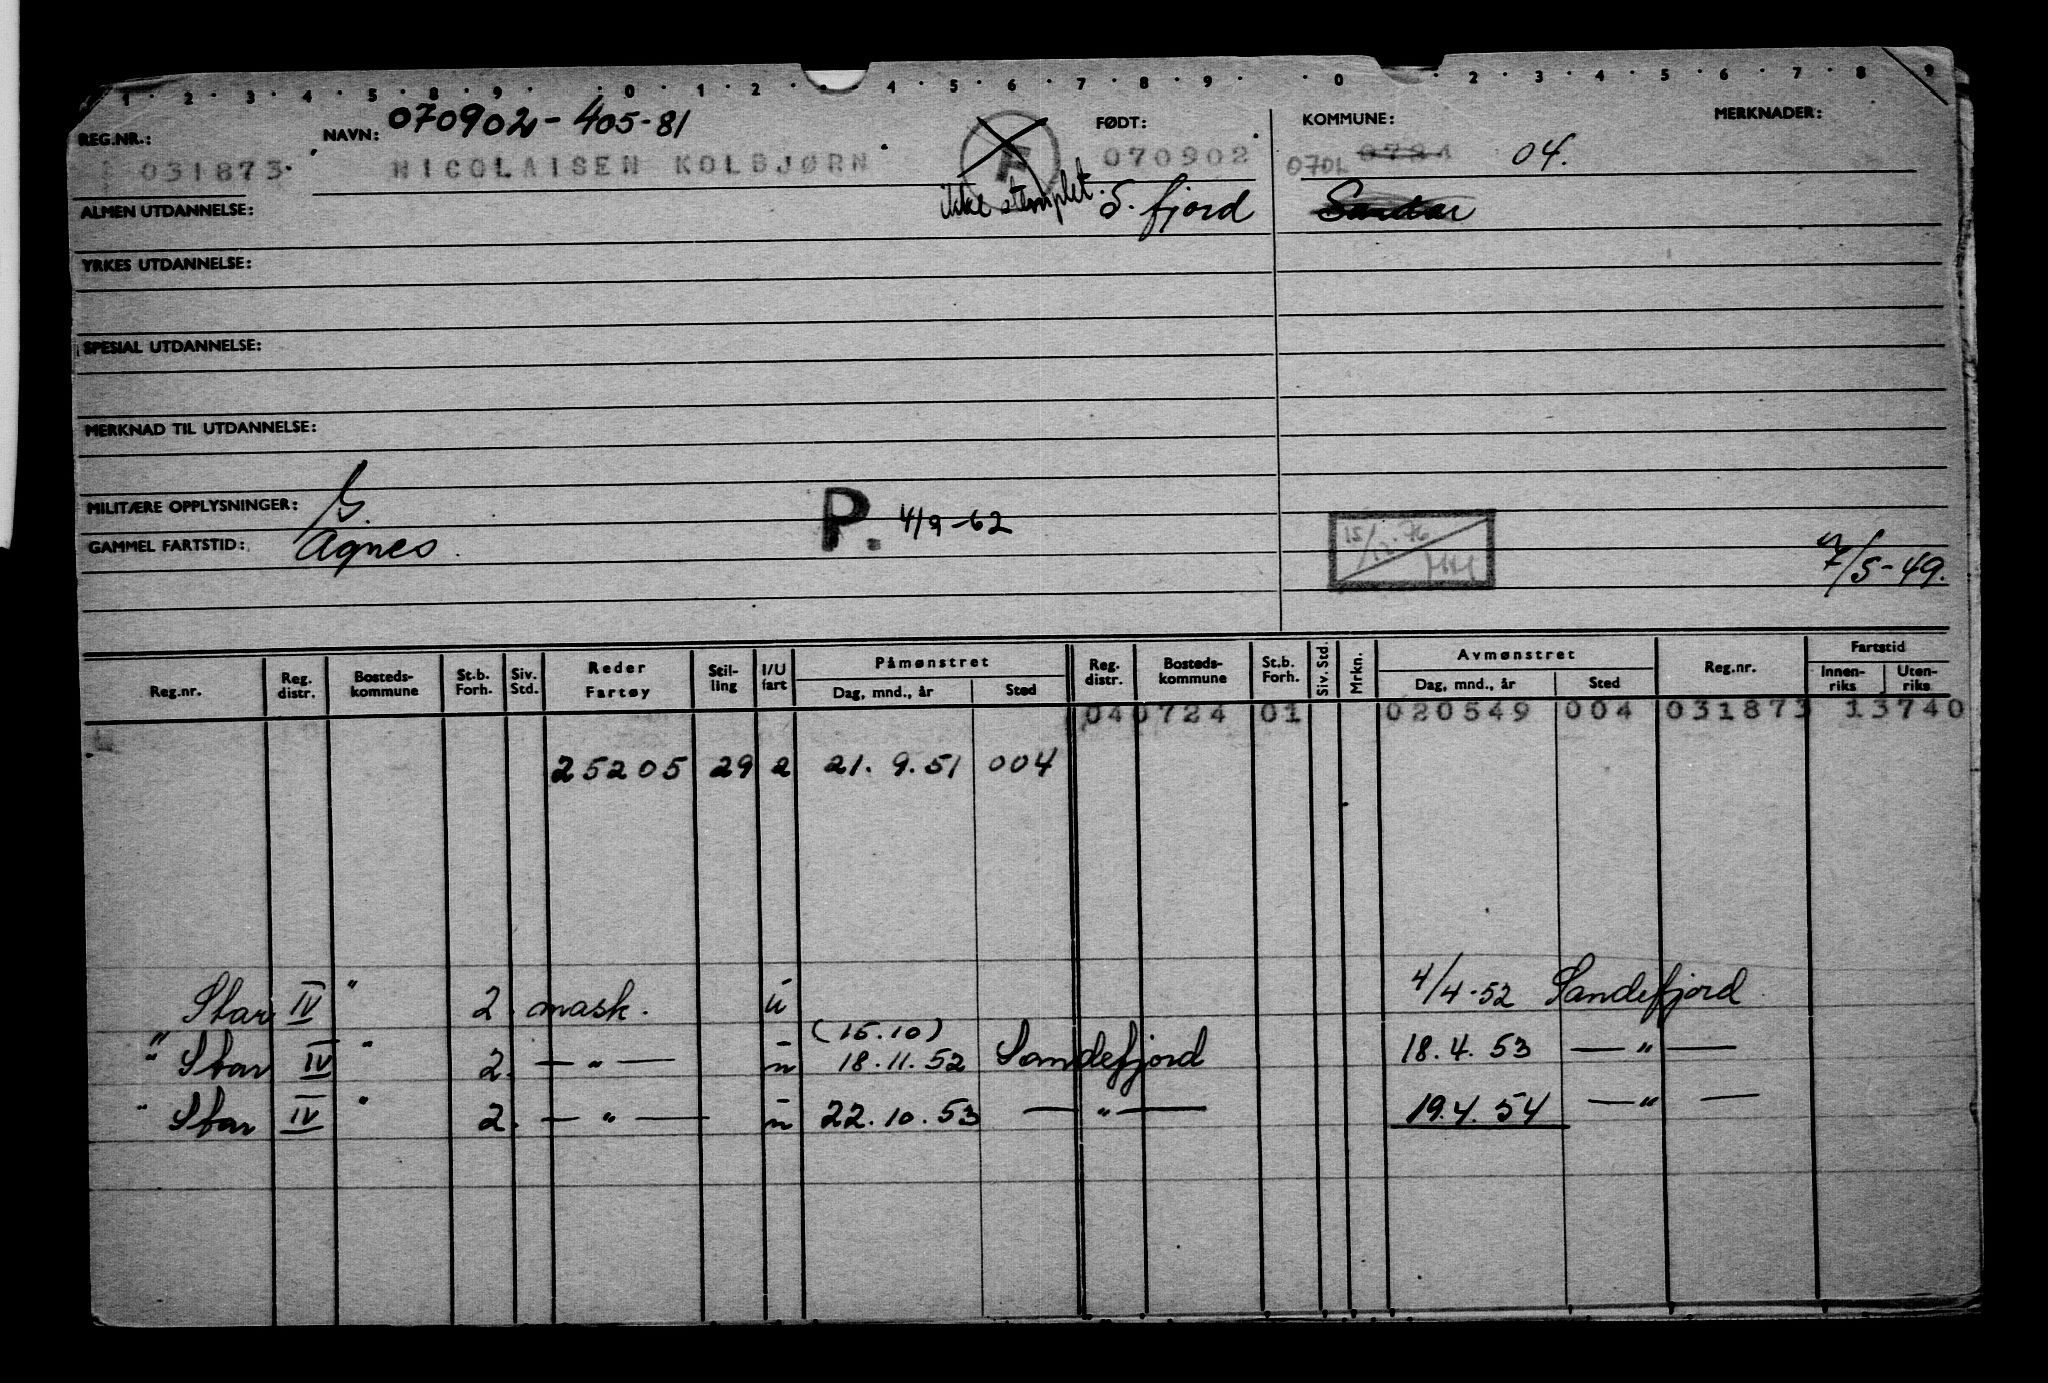 1 · 2 · 3 · 4 · 5 · 8 · 9 · · 0 · 1 · 2 · 4 · 5 · 6 · 7 · 8 · 9 · · 0 · 2 · 3 · 4 · 5 · 6 · 7 · 8 · 9
REG.NR.: NAVN: 070902-405-81 FØDT: KOMMUNE: MERKNADER:
031873 NICOLAISEN KOLBJØRN F 070902 0701 0724 04.
ALMEN UTDANNELSE: ikke stemplet S. fjord Sandar
YRKES UTDANNELSE:
SPESIAL UTDANNELSE:
MERKNAD TIL UTDANNELSE:
MILITÆRE OPPLYSNINGER: P. 4/9-62
GAMMEL FARTSTID: Agnes 15/12.76 7/5-49.
Reg.nr. Reg. distr. Bosteds-kommune St.b. Forh. Siv. Std. Reder Fartøy Stil-ling I/U fart Påmønstret Dag, mnd., år Sted Reg. distr. Bosteds-kommune St.b. Forh. Siv. Std. Mrkn. Avmønstret Dag, mnd., år Sted Reg.nr. Fartstid Innen-riks Uten-riks
040724 01 020549 004 031873 13740
25205 29 2 21. 9. 51 004
Star IV " 2. mask. u 4/4-52 Sandefjord
(15.10)
" Star IV " 2. — " — u 18.11.52 Sandefjord 18.4.53 — " —
" Star IV " 2. — " — u 22.10.53 — " — 19.4.54 — " —